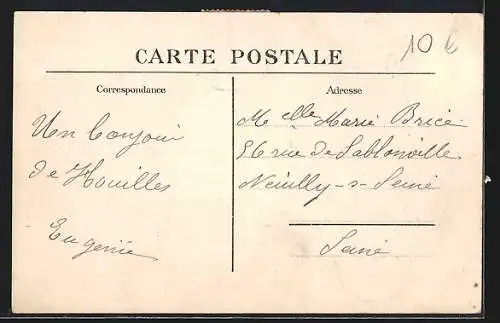 CARTE POSTALE
10 €
Correspondance
Un bonjour
de Houilles
Eugénie
Adresse
Melle Marie Brice
56 rue de Sablonville
Neuilly-s-Seine
Seine